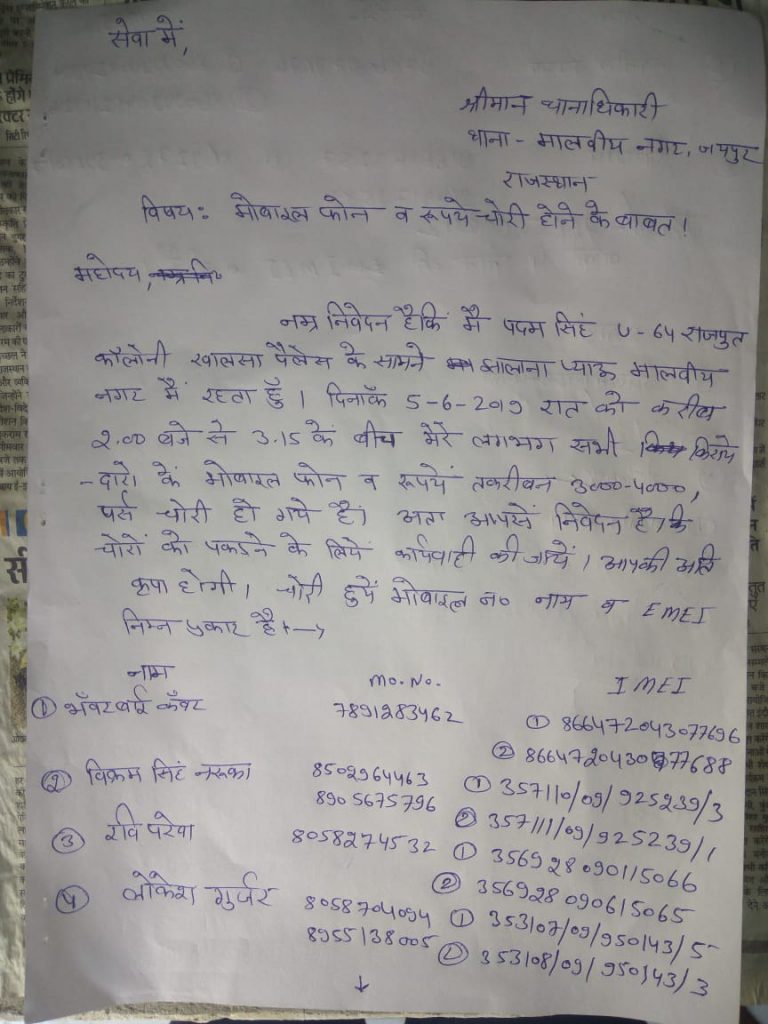 सेवा में,
श्रीमान थानाधिकारी
थाना - मालवीय नगर, जयपुर
राजस्थान
विषय: मोबाइल फोन व रूपये चोरी होने के बाबत।
महोदय,
नम्र निवेदन है कि मै पदम सिंह U-64 राजपुत
कॉलोनी खालसा पैलेस के सामने आलाना प्याऊ मालवीय
नगर मैं रहता हूँ। दिनाँक 5-6-2019 रात को करीब
2.00 बजे से 3.15 के बीच मेरे लगभग सभी किराये
-दारो के मोबाइल फोन व रूपयें तकरीबन 3000-4000,
पर्स चोरी हो गये है। अतः आपसे निवेदन है कि
चोरों को पकडने के लिये कार्यवाही की जाये। आपकी अति
कृपा होगी। चोरी हुयें मोबाइल न० नाम व EMEI
निम्न प्रकार है :-→
नाम Mo. No. IMEI
① भँवर बाई कँवर 7891283462 ① 866472043077696
② 866472043077688
② विक्रम सिंह नरूका 8502964463 ① 357110/09/925239/3
8905675796 ② 357111/09/925239/1
③ रवि परेवा 8058274532 ① 356928090115066
② 356928090615065
④ लोकेश गुर्जर 8058704094 ① 353107/09/950143/5
8955138005 ② 353108/09/950143/3
↓